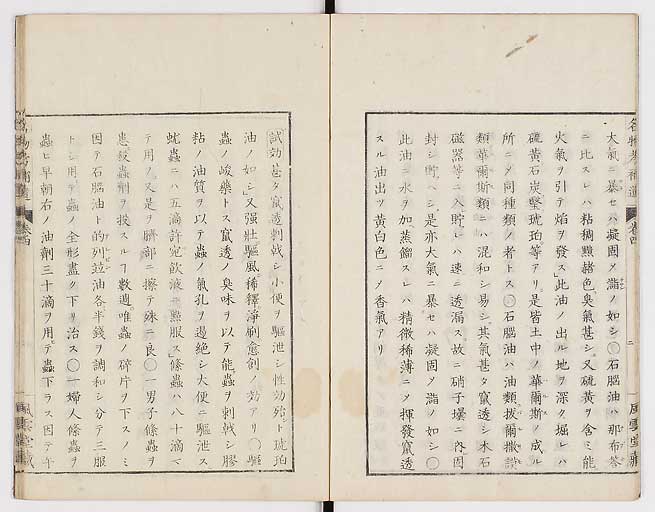 名物考補遺 卷四 二 風雲堂藏
大氣ニ暴セハ凝固メ瀡ノ如シ〇石脳油ハ那布荅
ニ比スレハ粘稠黯赭色臭氣甚シ又硫黄ヲ含ミ能
火氣ヲ引テ焰ヲ發ス」此油ノ出ル地ヲ深ク堀レハ
硫黄石炭堅琥珀等アリ是皆土中ノ華爾斯ノ成ル
所ニメ同種類ノ者トス〇石脳油ハ油類拔爾撒謨
類華爾斯類ニハ混和シ易シ其氣甚タ竄透シ木石
磁器等ニ入貯レハ速ニ透漏ス故ニ硝子壜ニ内固
封シ貯ヘシ是亦大氣ニ暴セハ凝固メ瀡ノ如シ〇
此油ニ水ヲ加蒸餾スレハ精微稀薄ニメ揮發竄透
スル油出ツ黄白色ニメ香氣アリ
試効甚タ竄透刺戟シ小便ヲ驅泄シ性効殆ト琥珀
油ノ如シ」又强壯驅風稀釋淨刷愈創ノ効アリ〇驅
蟲ノ峻藥トス竄透ノ臭味ヲ以テ能蟲ヲ刺戟シ膠
粘ノ油質ヲ以テ蟲ノ氣孔ヲ遏絶シ大便ニ驅泄ス
蚘蟲ニハ五滴許宛飲液ニ㸃服ス條蟲ハ八十滴マ
テ用ノ又是ヲ臍部ニ擦テ殊ニ良〇一男子條蟲ヲ
患殺蟲劑ヲ投スルヿ數週唯蟲ノ碎片ヲ下スノミ
因テ石脳油ト的列竝油各半錢ヲ調和シ分テ三服
トシ用テ蟲ノ全形盡ク下リ治ス〇一婦人條蟲ヲ
蟲ヒ早朝右ノ油劑三十滴ヲ用テ蟲下ラス因テ午
卷四 風雲堂藏